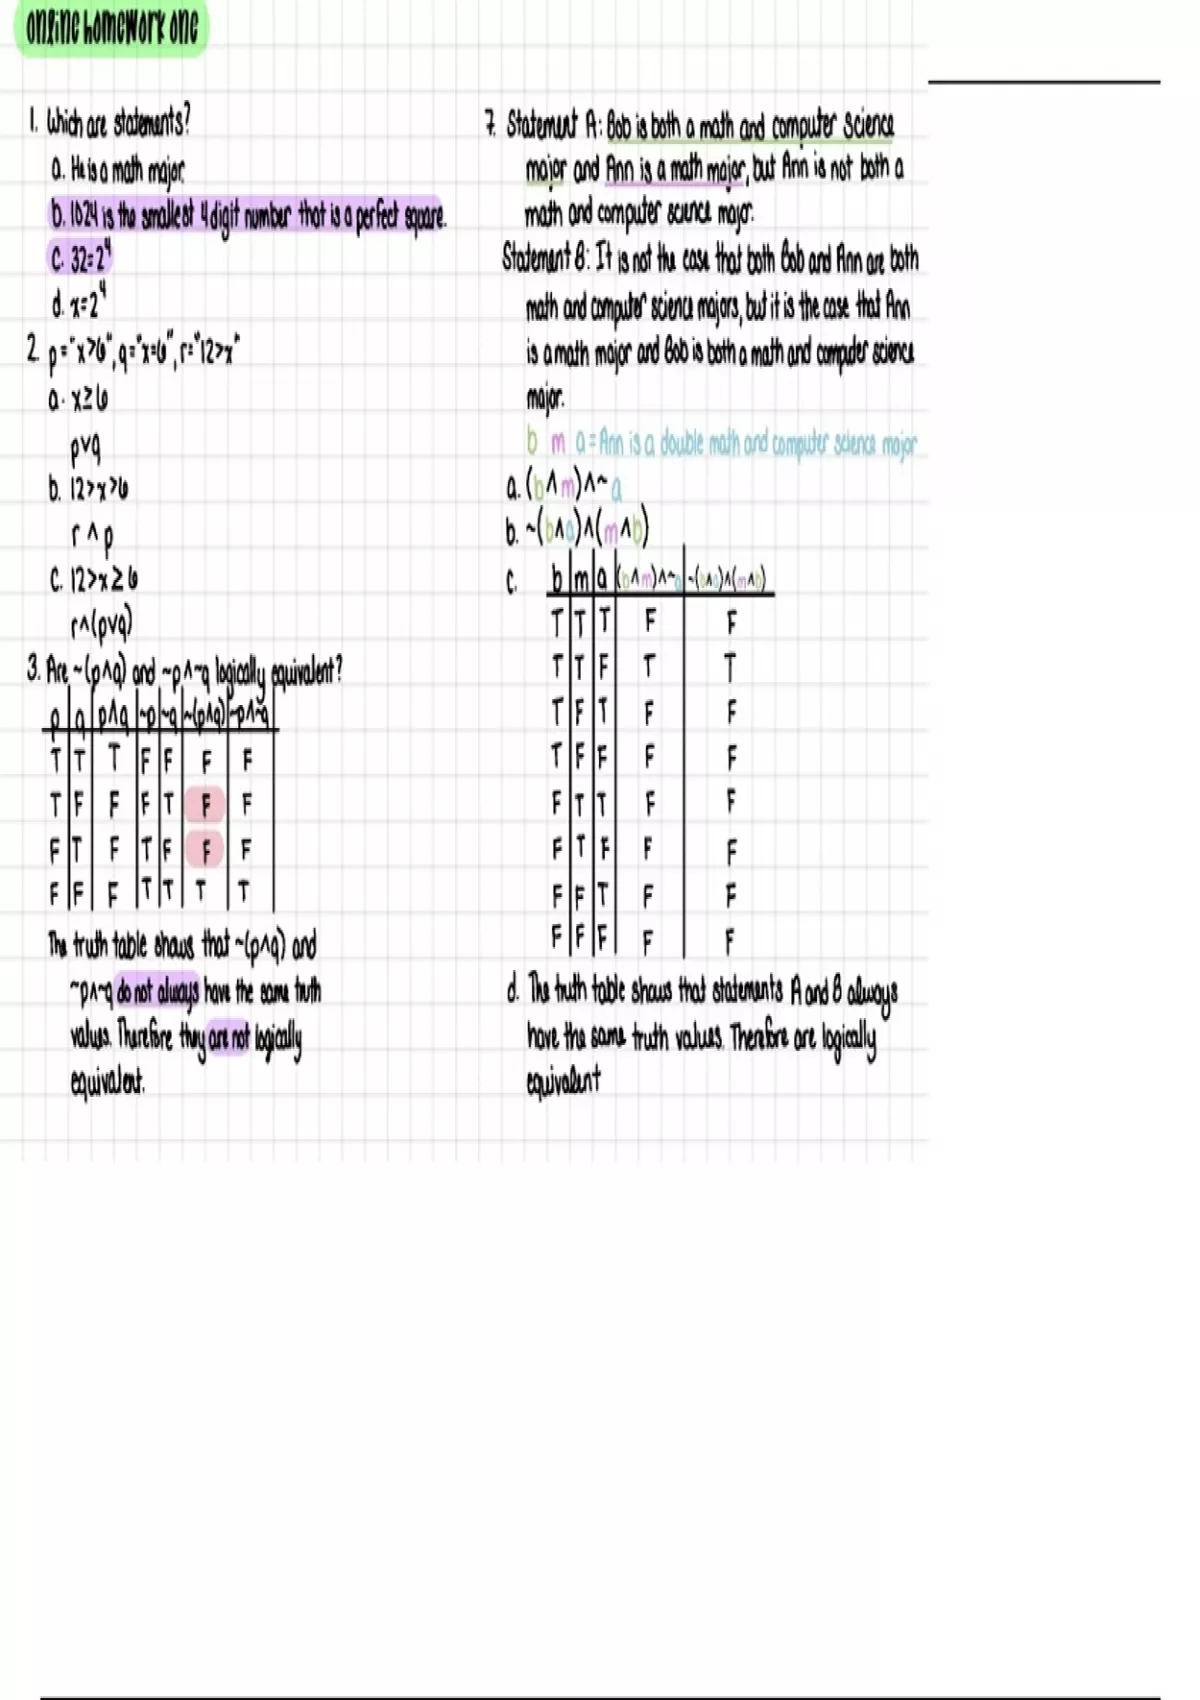 online homework one
1. Which are statements?
a. He is a math major.
b. 1024 is the smallest 4 digit number that is a perfect square.
c. 32=2⁴
d. x=2⁴
2. p="x>6", q="x=6", r="12>x"
a. x≥6
p∨q
b. 12>x>6
r∧p
c. 12>x≥6
r∧(p∨q)
3. Are ~(p∧q) and ~p∧~q logically equivalent?
p q p∧q ~p ~q ~(p∧q) ~p∧~q
T T T F F F F
T F F F T F F
F T F T F F F
F F F T T T T
The truth table shows that ~(p∧q) and
~p∧~q do not always have the same truth
values. Therefore they are not logically
equivalent.
7. Statement A: Bob is both a math and computer science
major and Ann is a math major, but Ann is not both a
math and computer science major.
Statement B: It is not the case that both Bob and Ann are both
math and computer science majors, but it is the case that Ann
is a math major and Bob is both a math and computer science
major.
b m a = Ann is a double math and computer science major
a. (b∧m)∧~a
b. ~(b∧a)∧(m∧b)
c. b m a (b∧m)∧~a ~(b∧a)∧(m∧b)
T T T F F
T T F T T
T F T F F
T F F F F
F T T F F
F T F F F
F F T F F
F F F F F
d. The truth table shows that statements A and B always
have the same truth values. Therefore are logically
equivalent